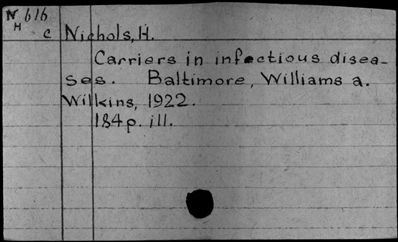 N 616
H
c Nichols, H.
Carriers in infectious disea-
ses. Baltimore, Williams a.
Wilkins, 1922.
184p. ill.